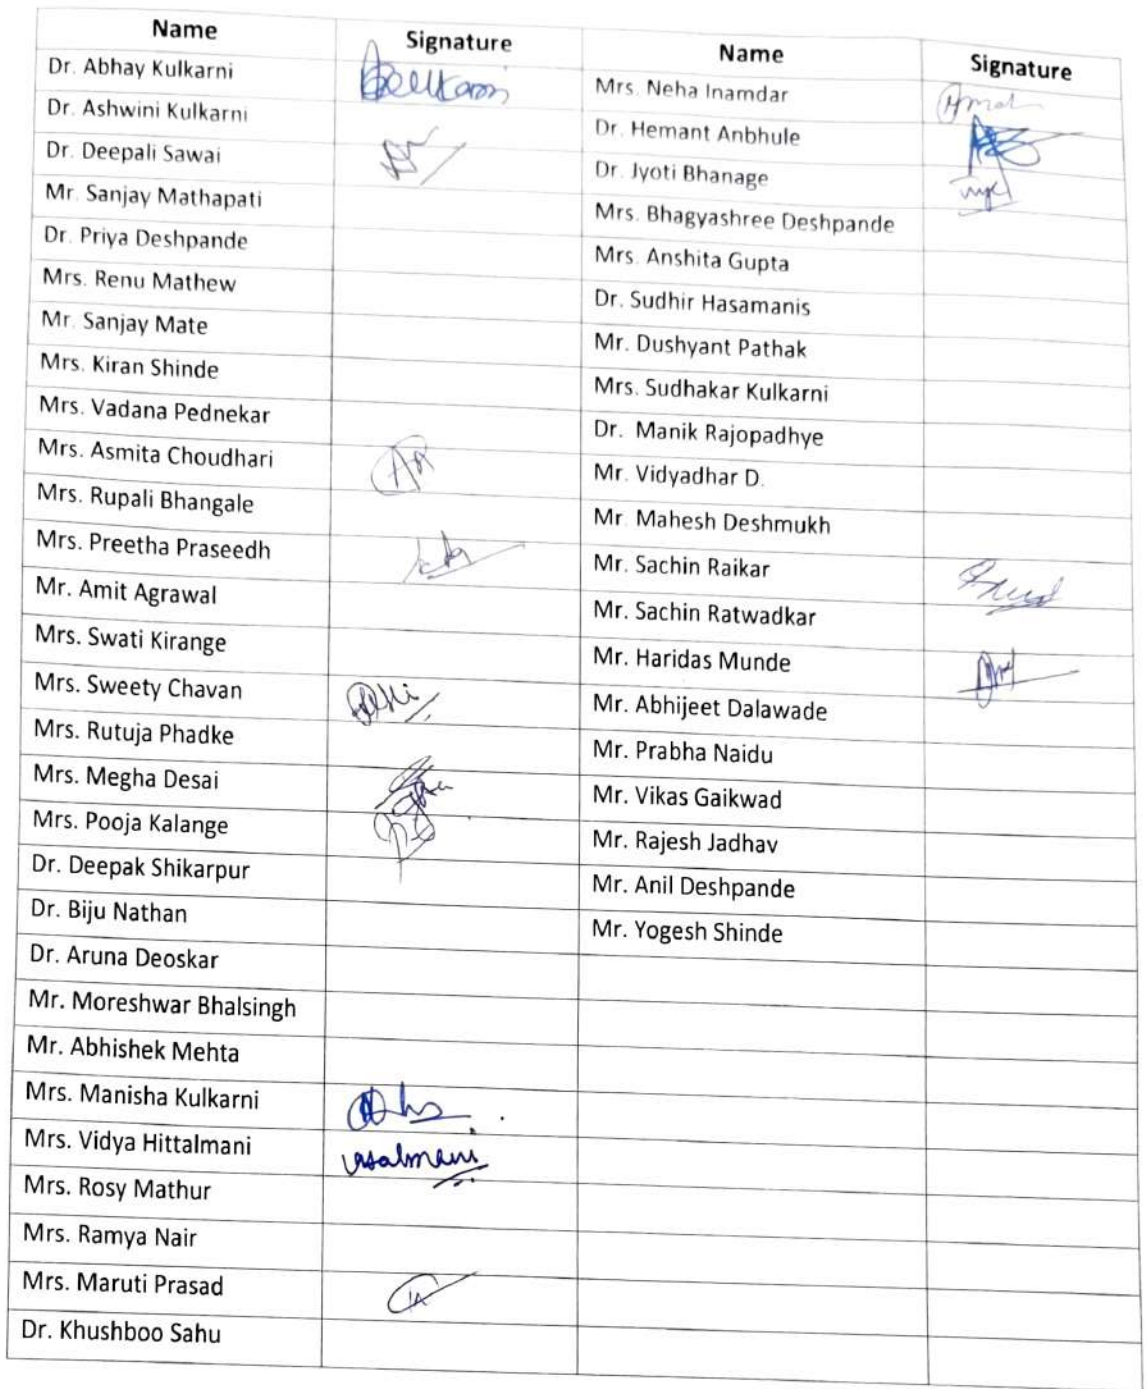 Name Signature Name Signature
Dr. Abhay Kulkarni Mrs. Neha Inamdar
Dr. Ashwini Kulkarni Dr. Hemant Anbhule
Dr. Deepali Sawai Dr. Jyoti Bhanage
Mr. Sanjay Mathapati Mrs. Bhagyashree Deshpande
Dr. Priya Deshpande Mrs. Anshita Gupta
Mrs. Renu Mathew Dr. Sudhir Hasamanis
Mr. Sanjay Mate Mr. Dushyant Pathak
Mrs. Kiran Shinde Mrs. Sudhakar Kulkarni
Mrs. Vadana Pednekar Dr. Manik Rajopadhye
Mrs. Asmita Choudhari Mr. Vidyadhar D.
Mrs. Rupali Bhangale Mr. Mahesh Deshmukh
Mrs. Preetha Praseedh Mr. Sachin Raikar
Mr. Amit Agrawal Mr. Sachin Ratwadkar
Mrs. Swati Kirange Mr. Haridas Munde
Mrs. Sweety Chavan Mr. Abhijeet Dalawade
Mrs. Rutuja Phadke Mr. Prabha Naidu
Mrs. Megha Desai Mr. Vikas Gaikwad
Mrs. Pooja Kalange Mr. Rajesh Jadhav
Dr. Deepak Shikarpur Mr. Anil Deshpande
Dr. Biju Nathan Mr. Yogesh Shinde
Dr. Aruna Deoskar
Mr. Moreshwar Bhalsingh
Mr. Abhishek Mehta
Mrs. Manisha Kulkarni
Mrs. Vidya Hittalmani
Mrs. Rosy Mathur
Mrs. Ramya Nair
Mrs. Maruti Prasad
Dr. Khushboo Sahu